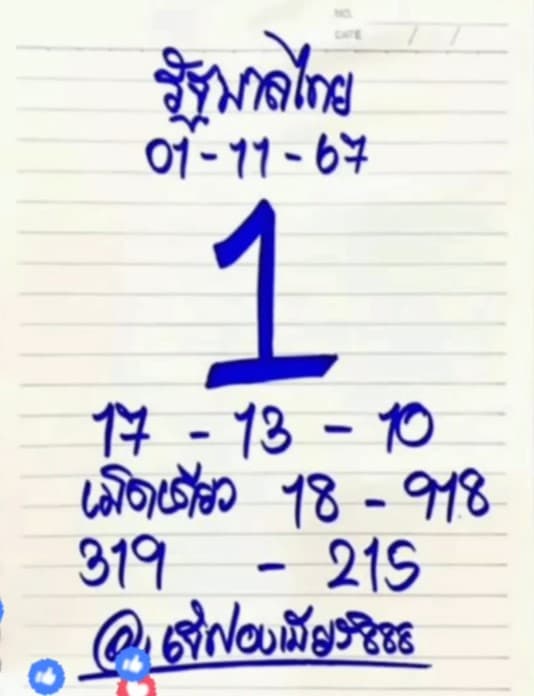 NO.
DATE / /
รัฐบาลไทย
01-11-67
1
17 - 13 - 10
เม็ดเดียว 18 - 918
319 - 215